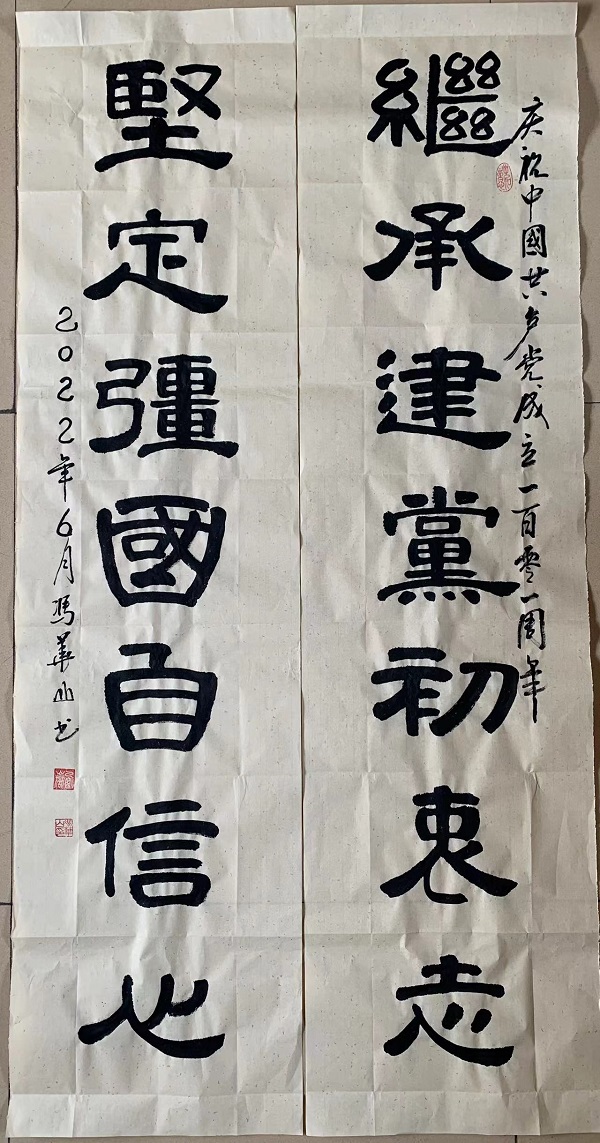 庆祝中國共产党成立一百零一周年
繼承建黨初衷志
堅定彊國自信心
2022年6月馮華山书